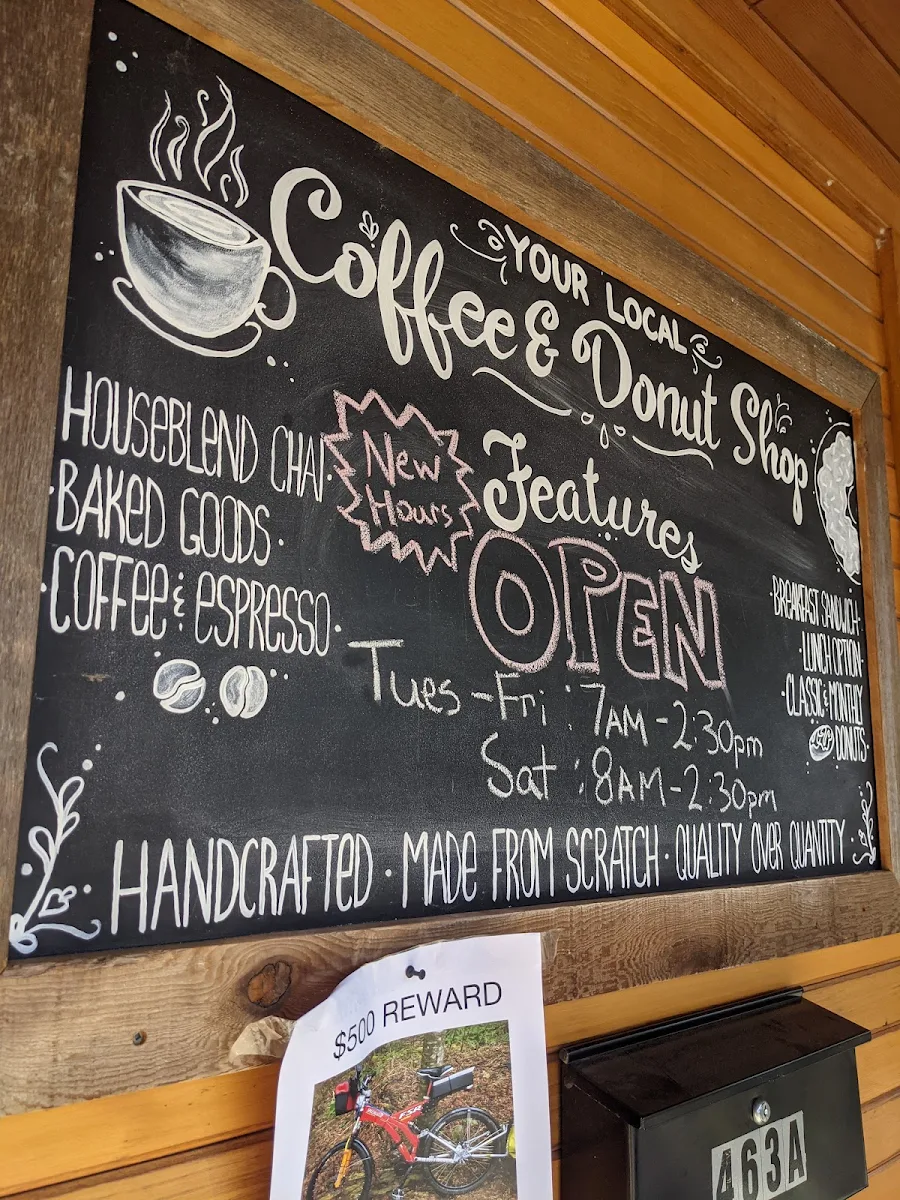 YOUR LOCAL
Coffee & Donut Shop
Features
HOUSEBLEND CHAI·
·BAKED GOODS·
·COFFEE & ESPRESSO·
New
Hours
OPEN
Tues-Fri : 7AM-2:30pm
Sat : 8AM-2:30pm
·BREAKFAST SANDWICH·
·LUNCH OPTION·
·CLASSIC & MONTHLY
DONUTS·
·HANDCRAFTED · MADE FROM SCRATCH · QUALITY OVER QUANTITY·
$500 REWARD
463A